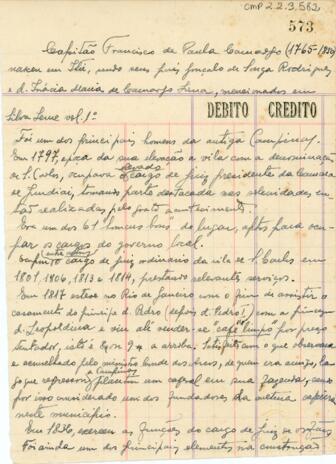 CMP 2.2.3.582
573
Capitão Francisco de Paula Camargo (1765-1850)
nasceu em Itú, sendo seus pais Gonçalo de Souza Rodrigues
e d. Inácia Maria de Camargo Lima, mencionados em
Silva Leme vol. 1º
DEBITO CREDITO
Foi um dos principais homens da antiga Campinas.
Em 1797, época da sua elevação a vila com a denominação
de S. Carlos, ocupava o cargo de juiz presidente da Camara
de Jundiaí, tomando parte destacada nas solenidades, en-
tão realizadas pelo fausto acontecimento.
Era um dos 61 homens bons do lugar, aptos para ocu-
par os cargos do governo local.
cargo de juiz ordinario da vila de S. Carlos em
1801, 1806, 1813 e 1814, prestando relevantes serviços.
Em 1817 esteve no Rio de Janeiro com o fim de assistir
casamento do principe d. Pedro (depois d. Pedro I) com a princeza
d. Leopoldina e viu ali vender-se "café limpo" por preço
tentador, isto é a arroba. Satisfeito com o que observara
e aconselhado pelo ministro conde dos Arcos, de quem era amigo, lo-
go que regressou a Campinas plantou um cafesal em sua fazenda, sendo
por isso considerado um dos fundadores da cultura cafeeira
neste municipio.
Em 1836, exerceu as funções do cargo de juiz de orfãos
Foi ainda um dos principais elementos na construção